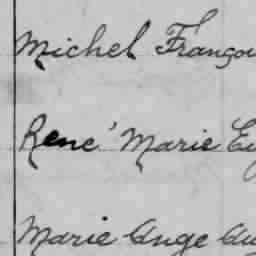 Michel Françoi
René Marie Eu
Marie Ange Au